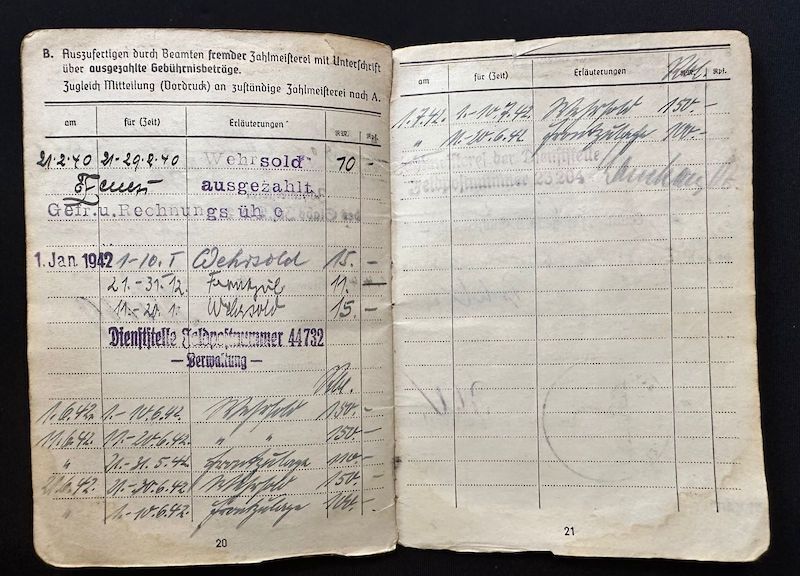 B. Auszufertigen durch Beamten fremder Zahlmeisterei mit Unterschrift
über ausgezahlte Gebührnisbeträge.
Zugleich Mitteilung (Vordruck) an zuständige Zahlmeisterei nach A.
am für (Zeit) Erläuterungen RM. Rpf.
21.2.40 21-29.2.40 Wehrsold 10 -
ausgezahlt
Gefr.u.Rechnungs üh
1. Jan 1942 1-10.I Wehrsold 15. -
21.-31.12. Frontzul 11. -
11.-20.1. Wehrsold 15 -
Dienststelle Feldpostnummer 44732
- Verwaltung -
Rbl.
1.6.42. 1.-10.6.42 Wehrsold 150.-
11.6.42. 11.-20.6.42. " " 150.-
" 21.-31.5.42 Frontzulage 110.-
21.-30.6.42 Wehrsold 150.-
" 1.-10.6.42 Frontzulage 100.-
20
am für (Zeit) Erläuterungen Rbl. Rpf.
1.7.42. 1.-10.7.42. Wehrsold 150.-
" 11.-20.6.42 Frontzulage 100.-
Zahlmeisterei der Dienststelle
Feldpostnummer 25204
21